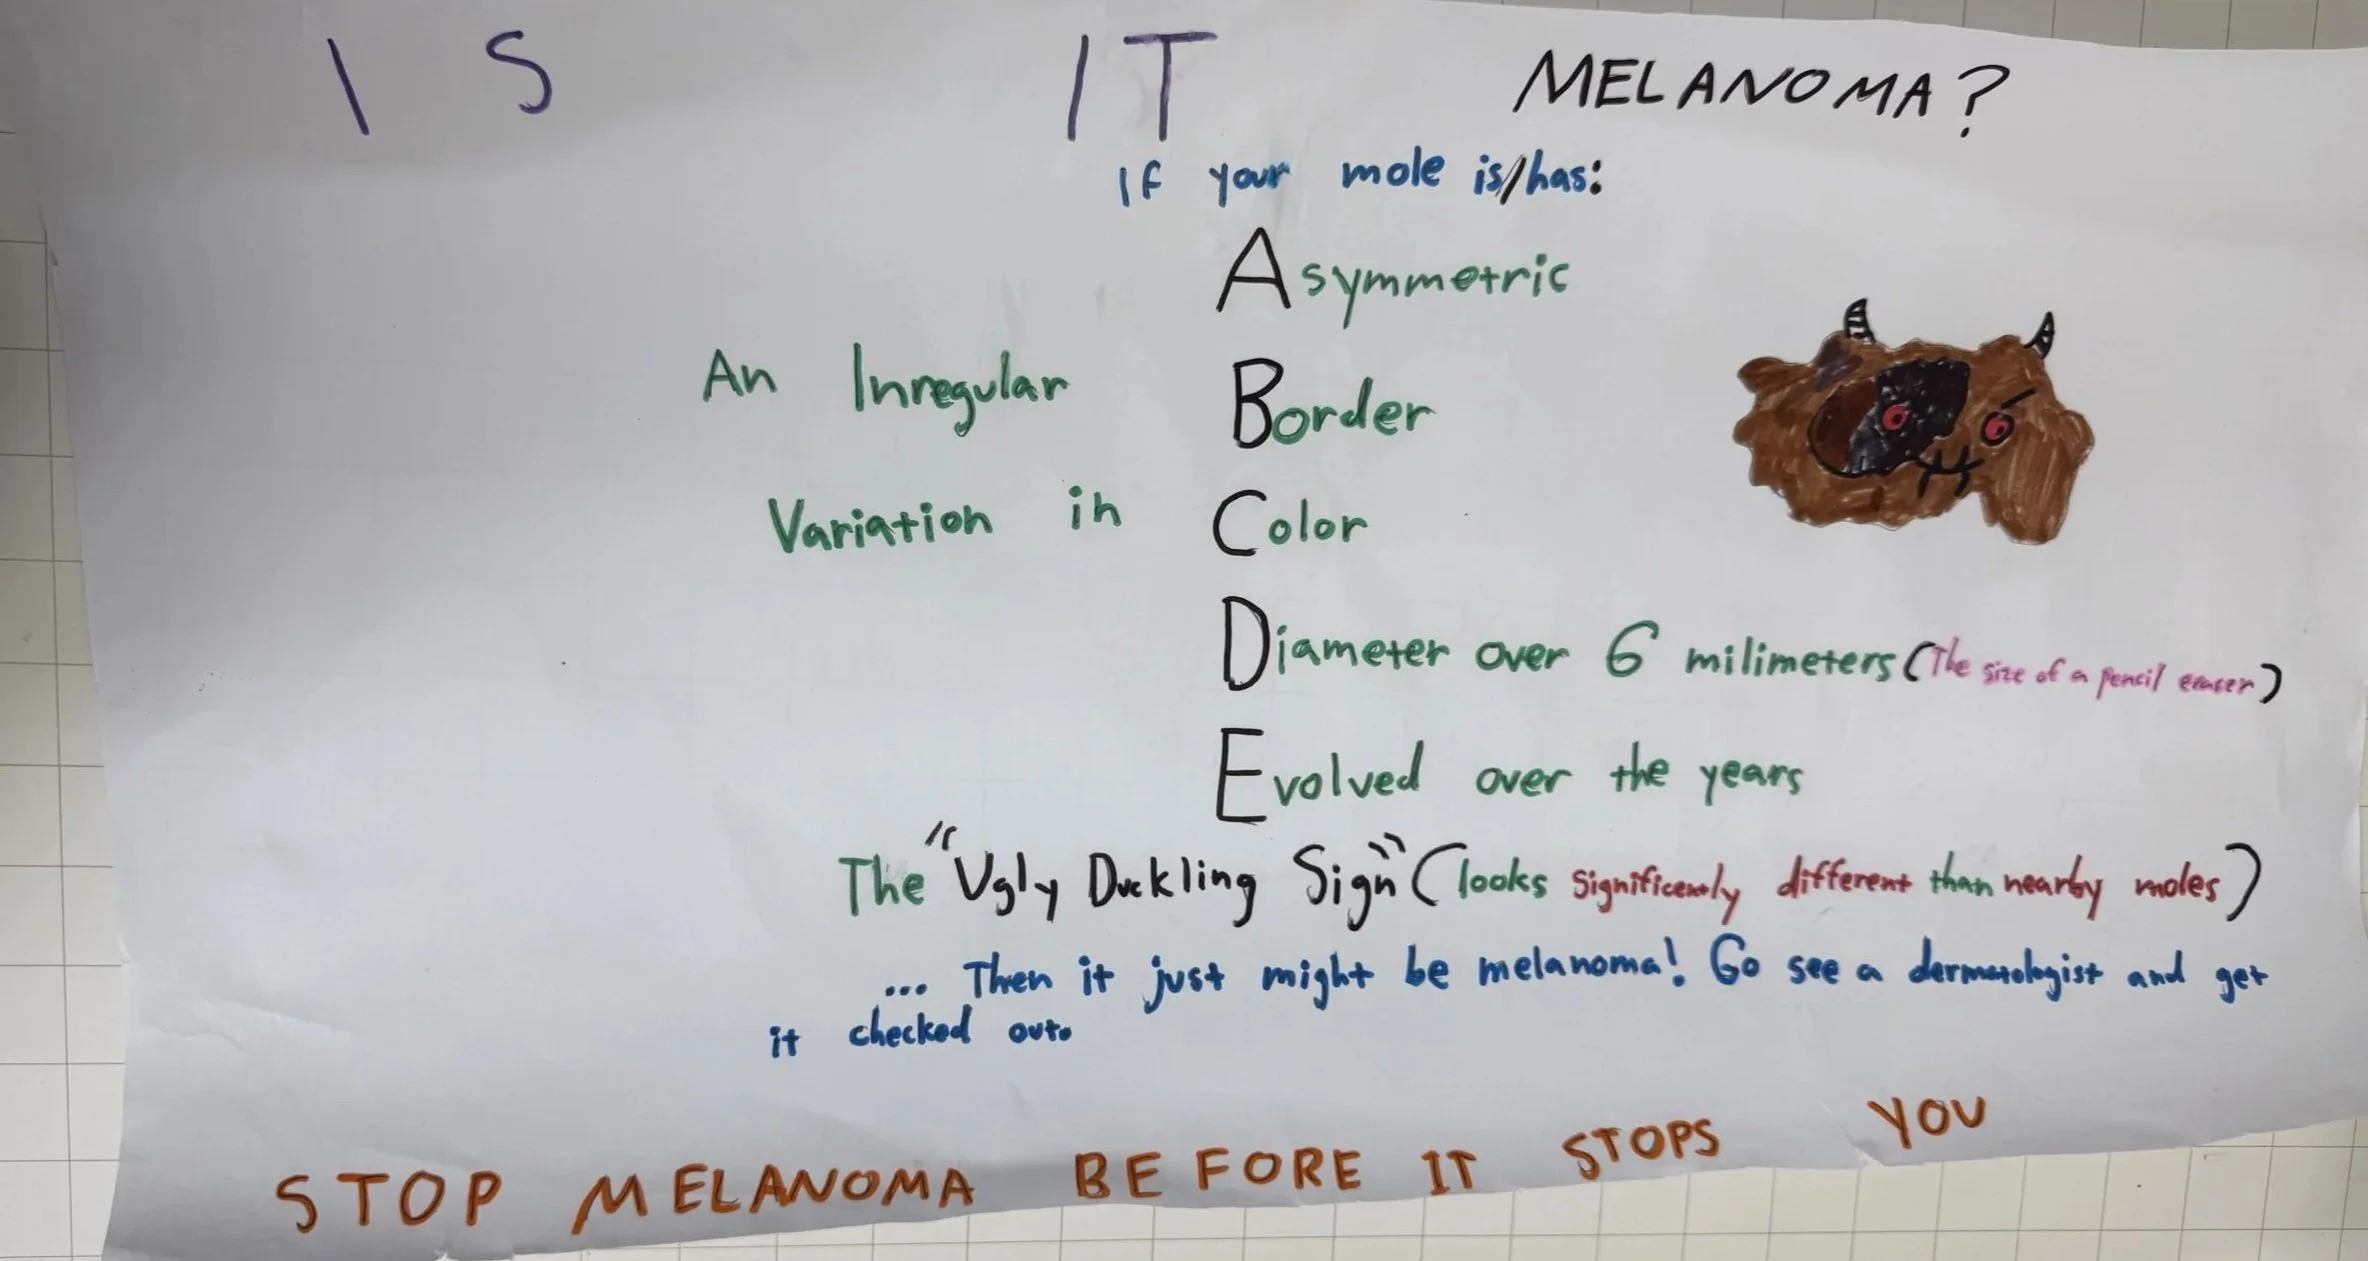 IS IT MELANOMA?
If your mole is/has:
Asymmetric
An Inregular Border
Variation in Color
Diameter over 6 milimeters (The size of a pencil eraser)
Evolved over the years
The "Ugly Duckling Sign" (looks significently different than nearby moles)
... Then it just might be melanoma! Go see a dermatologist and get
it checked out.
STOP MELANOMA BEFORE IT STOPS YOU